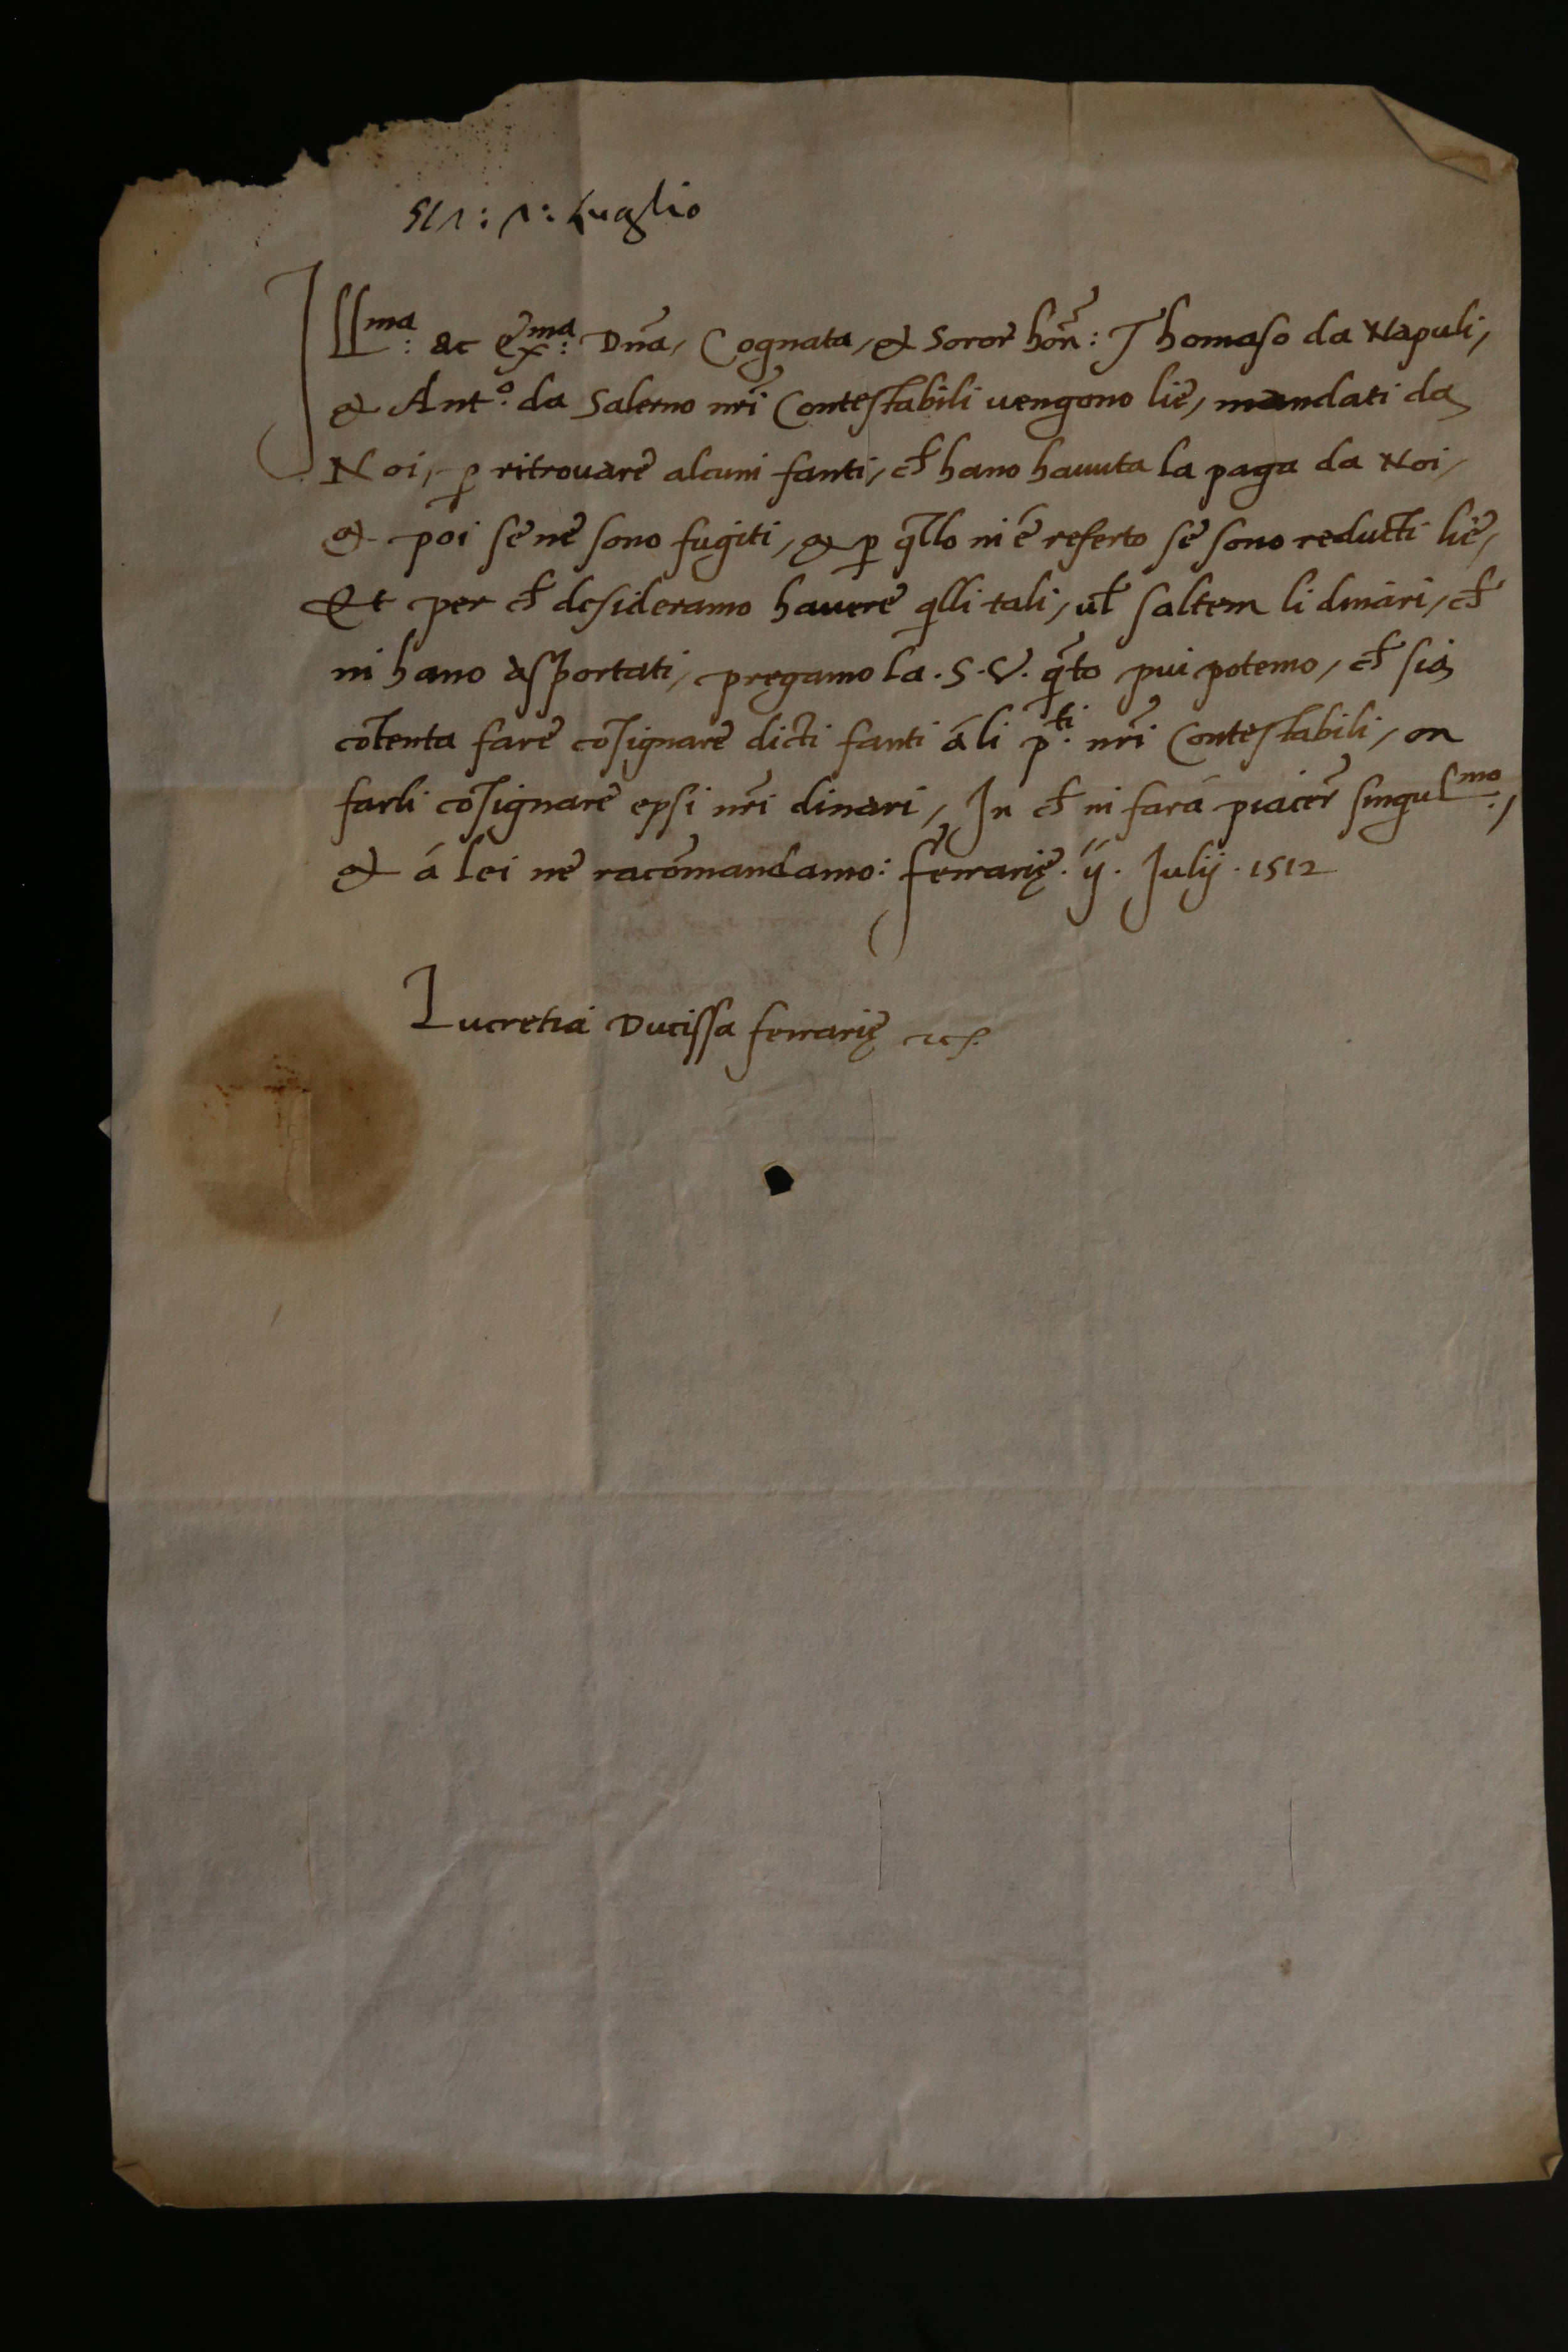 Luglio
Ill^ma: ac ex^ma: Dña, Cognata, & Soror hoñ: Thomaso da Napuli,
& Ant.° da Salerno nři Contestabili uengono lie, mandati da
Noi, ꝑ ritrouare alcuni fanti, cħ hano hauuta la paga da Noi,
& poi se ne sono fugiti, & ꝑ q̃llo ni é referto se sono reducti lie,
Et per cħ desideramo hauere q̃lli tali, ul̃ saltem li dinari, cħ
ni hano asportati, pręgamo la .S.V. q̃to pui potemo, cħ sia
cõtenta fare cõsignare dicti fanti á li p^ti. nři Contestabili, on
farli cõsignare epsi nři dinari, In cħ ni fará piacer̃ singul^mo.,
& á lei ne racõmandamo: ferrarię. ij. Julij. 1512
Lucretia Ducissa ferrarię